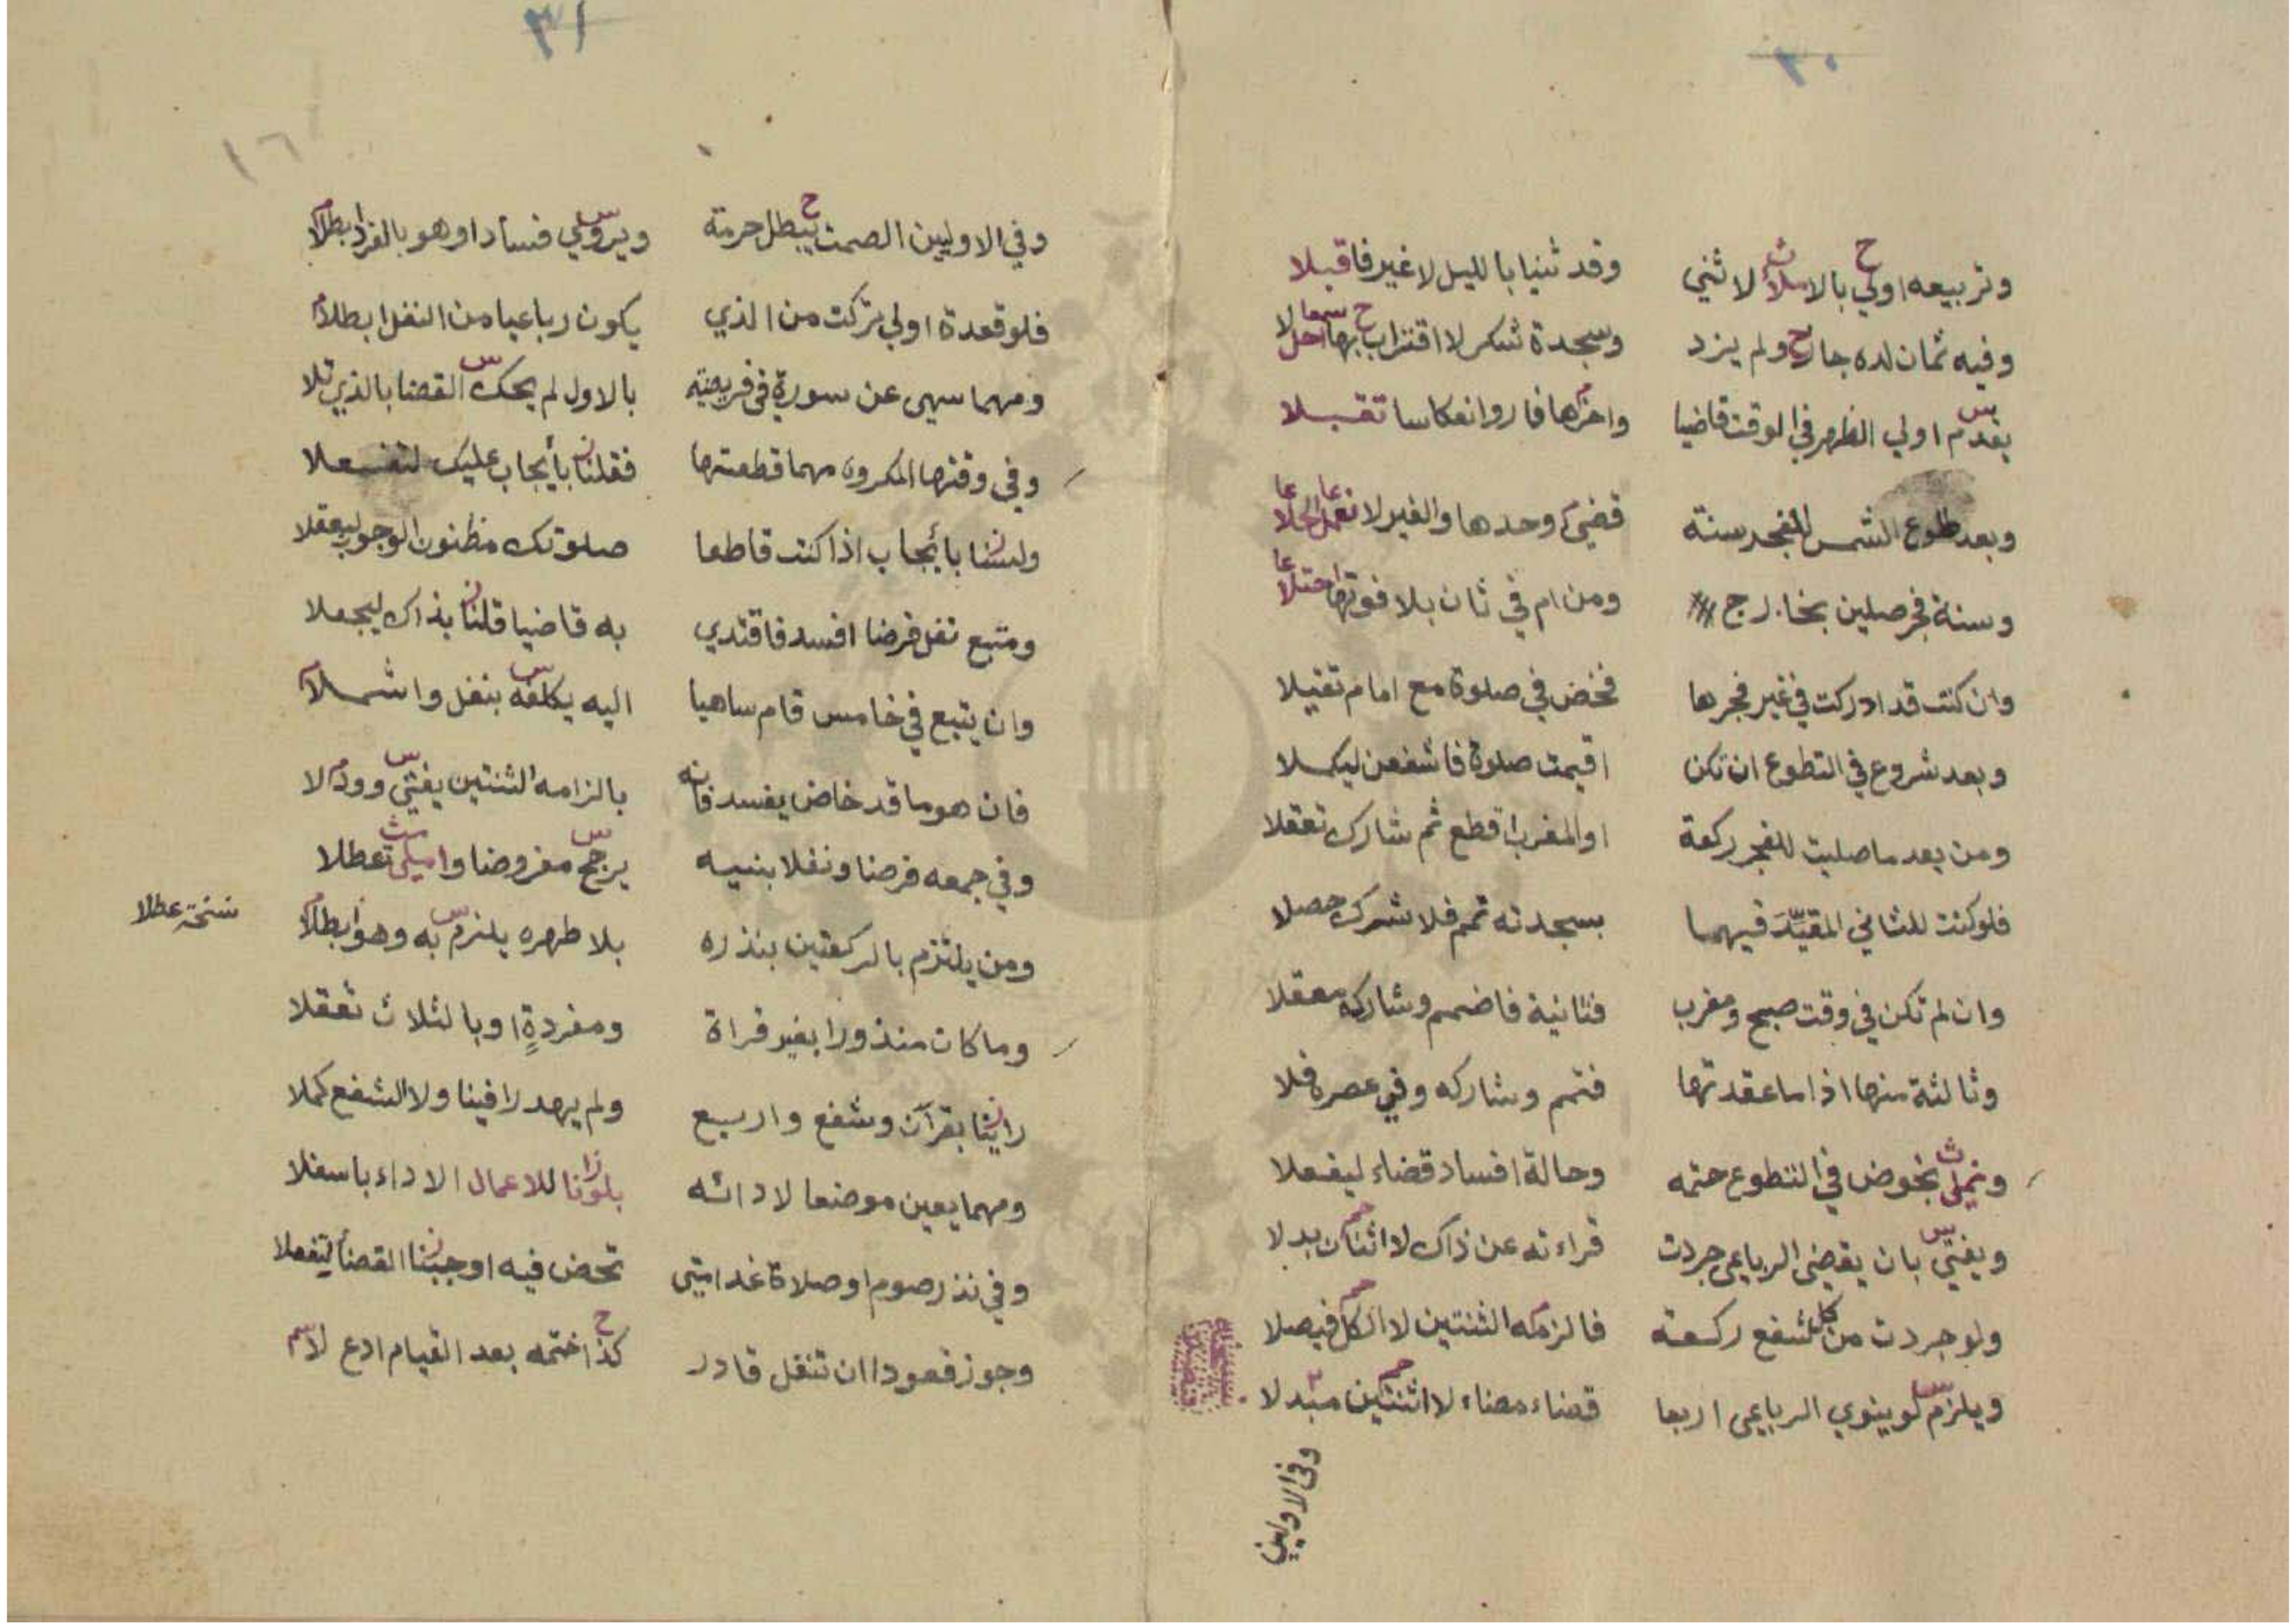 ٣٠
وتربيعه اولي بالاملاث لا ثني وقد ثنيا بالليل لا غير فاقبلا
وفيه ثمان لده جا ولم يزد وسجدة شكر لا اقتراب بها احلا
يقدم اولي الظهر في الوقت قاضيا واخرها فاروا نعكاسا تقبلا
وبعد طلوع الشمس للفجر سنة قضي وحدها والغير لا
وسنة فجر صلين بخارج ومن ام في ثان بلا فوتها احتلا
وان كنت قد ادركت في غير فجرها فخض في صلوة مع امام تقيلا
وبعد شروع في التطوع ان تكن اقيمت صلوة فاشفعن ليكملا
ومن بعد ما صليت للفجر ركعة او المغرب اقطع ثم شارك تعقلا
فلو كنت للثاني المقيّدَ فيهما بسجدته تمم فلا شرك حصلا
وان لم تكن في وقت صبح ومغرب فثانية فاضمم وشاركه معقلا
وثالثة منها اذا ما عقدتها فتمم وشاركه وفي عصره فلا
بخوض في التطوع حتمه وحالة افساد قضاء ليفعلا
ويفتي بان يقضي الرباعي جردت قراءته عن ذاك لا اثنان بدلا
ولو جردت من كل شفع ركعة فالزمه الثنتين لا الكل فيصلا
ويلزم لو ينوي الرباعي اربعا قضاء مضاء لا اثنتين مبدلا
وفي الاوليين
٣١
١٦
وفي الاوليين الصمت يبطل حرمة ويروي فسادا وهو بالفرد ابطلا
فلو قعدة اولي تركت من الذي يكون رباعيا من النفل ابطلا
ومهما سهى عن سورة في فريضة بالاول لم يحك القضا بالذي تلا
وفي وقتها المكروه مهما قطعتها فقلنا بأيجاب عليك لتفعلا
ولسنا بأيجاب اذا كنت قاطعا صلوتك مظنون الوجوب ليعقلا
ومتبع نفل فرضا افسد فاقتدي به قاضيا قلنا بذاك ليجعلا
وان يتبع في خامس قام ساهيا اليه يكلفه بنفل واشملا
فان هو ما قد خاض يفسد فانه بالزامه الثنتين يفتي وود لا
وفي جمعه فرضا ونفلا بنيه يرجح مفروضا تعطلا
نسخة عطلا
ومن يلتزم بالركعتين بنذره بلا طهره يلزم به وهو ابطلا
وما كان منذورا بغير قراة ومفردةٍ او بالثلاث تعقلا
راينا بقرآن وشفع واربع ولم يهدرا فينا ولا الشفع كملا
ومهما يعين موضعا لادائه بلونا للاعمال الاداء باسفلا
وفي نذر صوم او صلاة غدا متى تحض فيه اوجبنا القضا لتفعلا
وجوز قعودا ان تنفل قادر كذا ختمه بعد القيام ادع